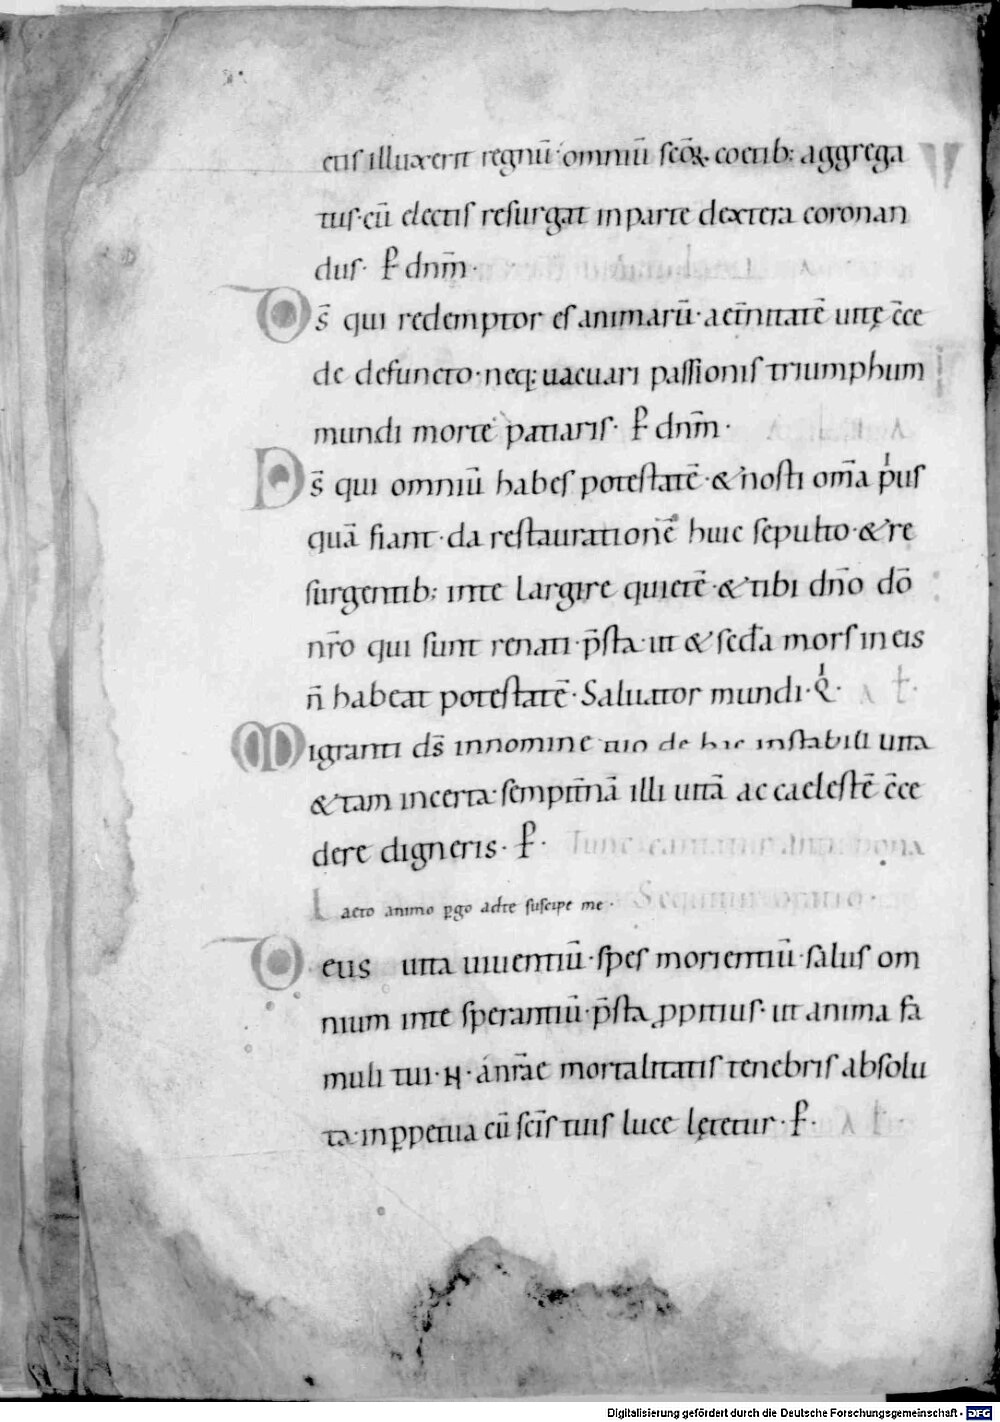 eius illuxerit regnū· omniū scōꝝ coetib; aggrega
tus· cū electis resurgat in parte dextera coronan
dus· ꝑ dnm̄·
Ds̄ qui redemptor es animarū· aet̄nitatē uitę c̄ce
de defuncto· neq; uacuari passionis triumphum
mundi morte patiaris· ꝑ dnm̄·
Ds̄ qui omniū habes potestatē· & nosti om̄a p̍us
quā fiant· da restaurationē huic sepulto· & re
surgentib; in te largire quietē· & tibi dn̄o dō
nr̄o qui sunt renati· p̄sta· ut & secđa mors in eis
n̄ habeat potestatē· Saluator mundi· Q̍·
Migranti ds̄ in nomine tuo de hac instabili uita
& tam incerta· sempit̄nā illi uitā ac caelestē c̄ce
dere digneris· ꝑ·
Tunc cantatur anti
Laeto animo ꝑgo ad te suscipe me·
Sequitur oratio·
Deus uita uiuentiū· spes morientiū· salus om
nium in te sperantiū· p̄sta ꝓpitius· ut anima fa
muli tui· N· a nr̄ae mortalitatis tenebris absolu
ta· in ꝑpetua cū scīs tuis luce lętetur· ꝑ·